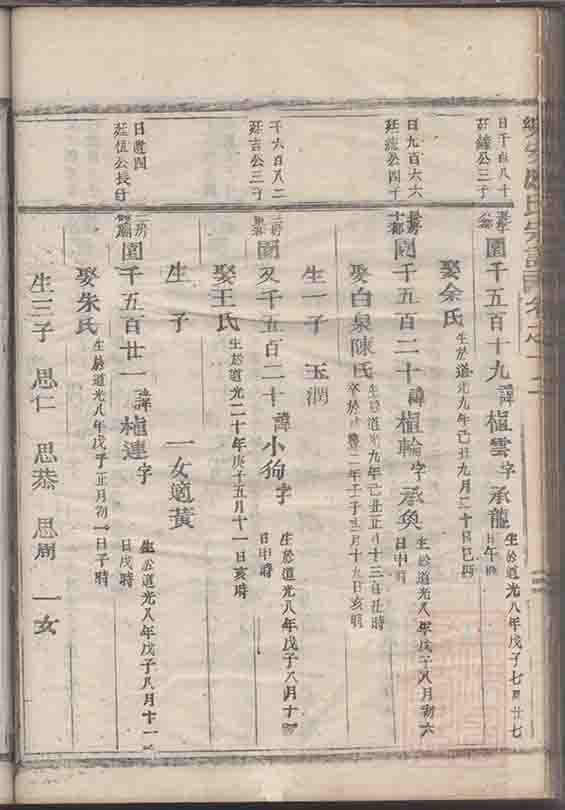 日千百八十
廷鐘公三子
園千五百十九 諱楦雲字承龍 生於道光八年戊子七月廿七日午時
娶余氏 生於道光九年己丑九月二十日巳時
日九百六六
廷 公四子
園千五百二十 諱楦輪字承奐 生於道光八年戊子八月初六日申時
娶白泉陳氏 生於道光九年己丑正月十三日丑時
卒於 二年壬子三月十九日亥時
生一子 玉潤
千六百八二
廷吉公三子
園又千五百二十 諱小狗字 生於道光八年戊子八月十 日申時
娶王氏 生於道光二十年庚子五月十一日亥時
生 子 一女適黃
日 四
廷恆公長子
園千五百廿一 諱楦連字 生於道光八年戊子八月十一日戌時
娶朱氏 生於道光八年戊子正月初一日子時
生三子 思仁 思恭 思周 一女